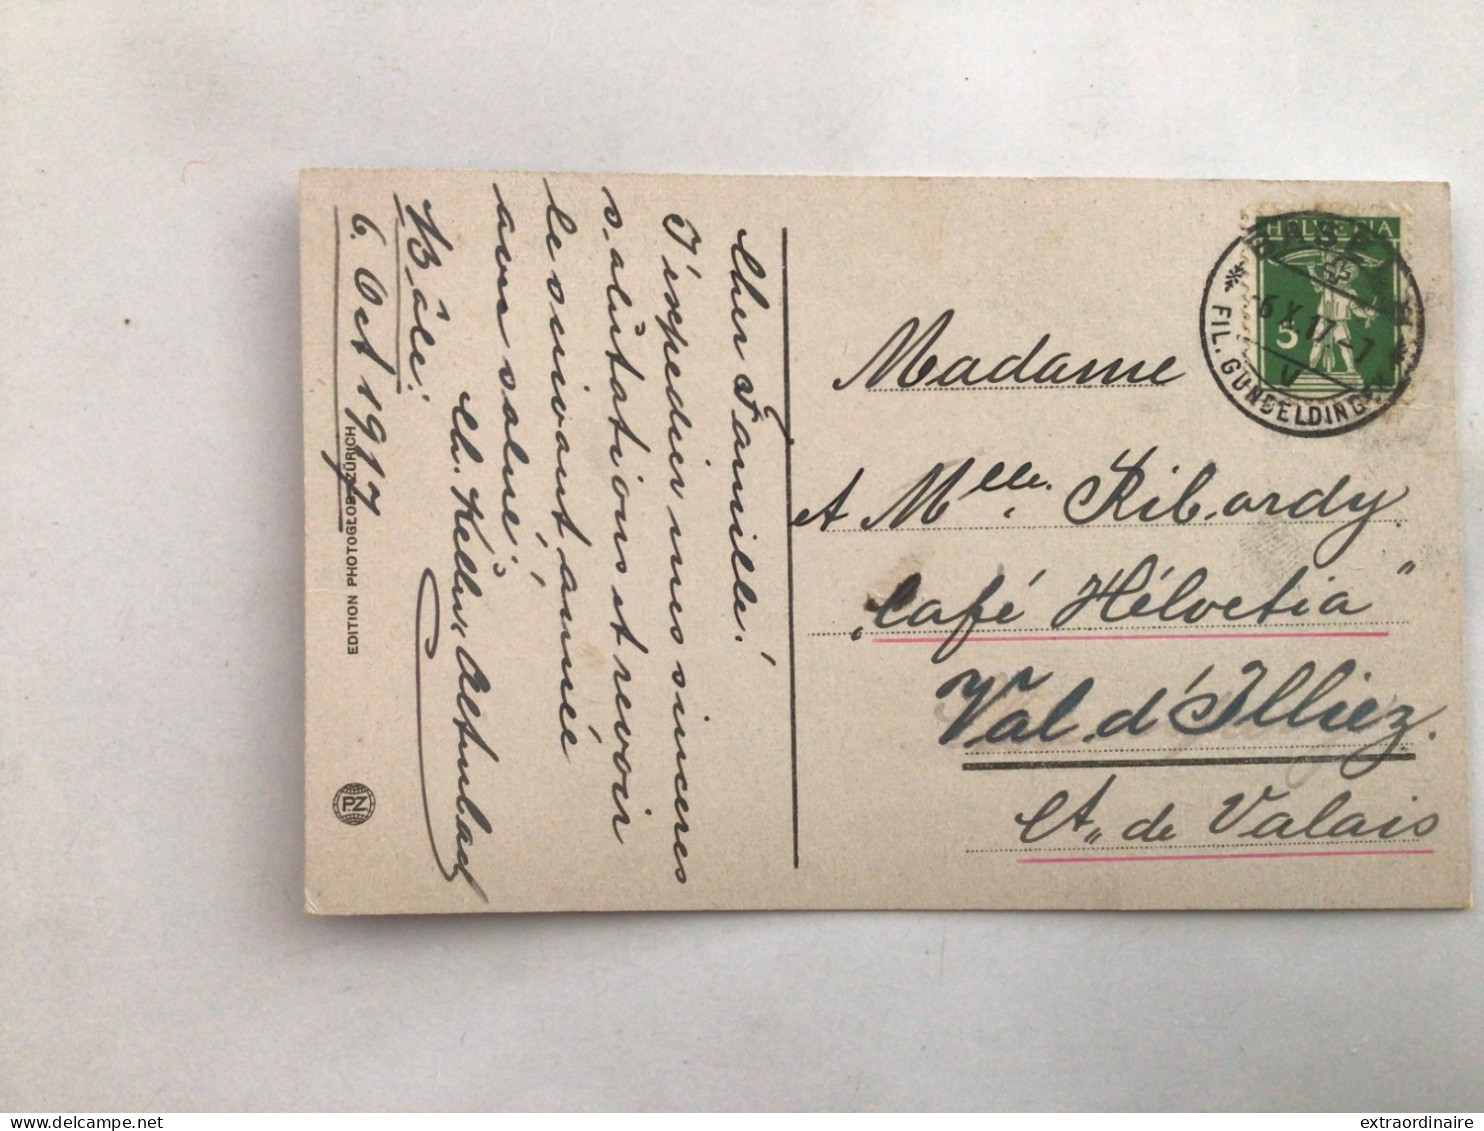 Cher Famille!
J'expedier mes sinceres
salutations et revoir
le suivant année
avon salué!
Ch. Keller,
Bâle.
6. Oct 1917
EDITION PHOTOGLOB ZÜRICH
PZ
HELVETIA
5
BASEL
6.X.17.-7
V
FIL. GUNDELDINGEN
Madame
A Melle. Ribordy
„Café Hélvetia"
Val d'Illiez.
Ct„ de Valais
Delcampe.net
extraordinaire